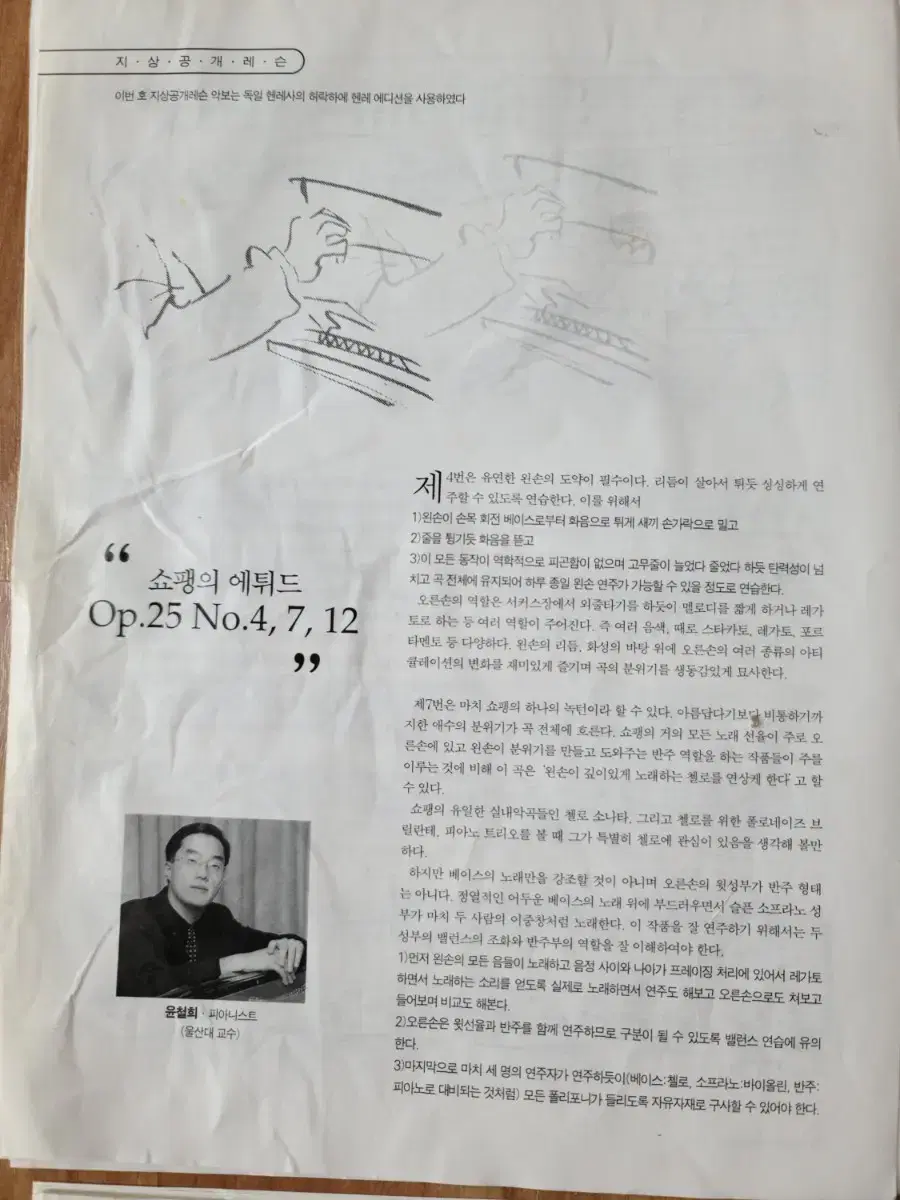 지·상·공·개·레·슨
이번 호 지상공개레슨 악보는 독일 헨레사의 허락하에 헨레 에디션을 사용하였다
“
쇼팽의 에튀드
Op.25 No.4, 7, 12
”
윤철희·피아니스트
(울산대 교수)
제4번은 유연한 왼손의 도약이 필수이다. 리듬이 살아서 튀듯 싱싱하게 연
주할 수 있도록 연습한다. 이를 위해서
1)왼손이 손목 회전 베이스로부터 화음으로 튀게 새끼 손가락으로 밀고
2)줄을 튕기듯 화음을 뜯고
3)이 모든 동작이 역학적으로 피곤함이 없으며 고무줄이 늘었다 줄었다 하듯 탄력성이 넘
치고 곡 전체에 유지되어 하루 종일 왼손 연주가 가능할 수 있을 정도로 연습한다.
오른손의 역할은 서커스장에서 외줄타기를 하듯이 멜로디를 짧게 하거나 레가
토로 하는 등 여러 역할이 주어진다. 즉 여러 음색, 때로 스타카토, 레가토, 포르
타멘토 등 다양하다. 왼손의 리듬, 화성의 바탕 위에 오른손의 여러 종류의 아티
큘레이션의 변화를 재미있게 즐기며 곡의 분위기를 생동감있게 묘사한다.
제7번은 마치 쇼팽의 하나의 녹턴이라 할 수 있다. 아름답다기보다 비통하기까
지한 애수의 분위기가 곡 전체에 흐른다. 쇼팽의 거의 모든 노래 선율이 주로 오
른손에 있고 왼손이 분위기를 만들고 도와주는 반주 역할을 하는 작품들이 주를
이루는 것에 비해 이 곡은 '왼손이 깊이있게 노래하는 첼로를 연상케 한다'고 할
수 있다.
쇼팽의 유일한 실내악곡들인 첼로 소나타, 그리고 첼로를 위한 폴로네이즈 브
릴란테, 피아노 트리오를 볼 때 그가 특별히 첼로에 관심이 있음을 생각해 볼만
하다.
하지만 베이스의 노래만을 강조할 것이 아니며 오른손의 윗성부가 반주 형태
는 아니다. 정열적인 어두운 베이스의 노래 위에 부드러우면서 슬픈 소프라노 성
부가 마치 두 사람의 이중창처럼 노래한다. 이 작품을 잘 연주하기 위해서는 두
성부의 밸런스의 조화와 반주부의 역할을 잘 이해하여야 한다.
1)먼저 왼손의 모든 음들이 노래하고 음정 사이와 나아가 프레이징 처리에 있어서 레가토
하면서 노래하는 소리를 얻도록 실제로 노래하면서 연주도 해보고 오른손으로도 쳐보고
들어보며 비교도 해본다.
2)오른손은 윗선율과 반주를 함께 연주하므로 구분이 될 수 있도록 밸런스 연습에 유의
한다.
3)마지막으로 마치 세 명의 연주자가 연주하듯이(베이스:첼로, 소프라노:바이올린, 반주:
피아노로 대비되는 것처럼) 모든 폴리포니가 들리도록 자유자재로 구사할 수 있어야 한다.